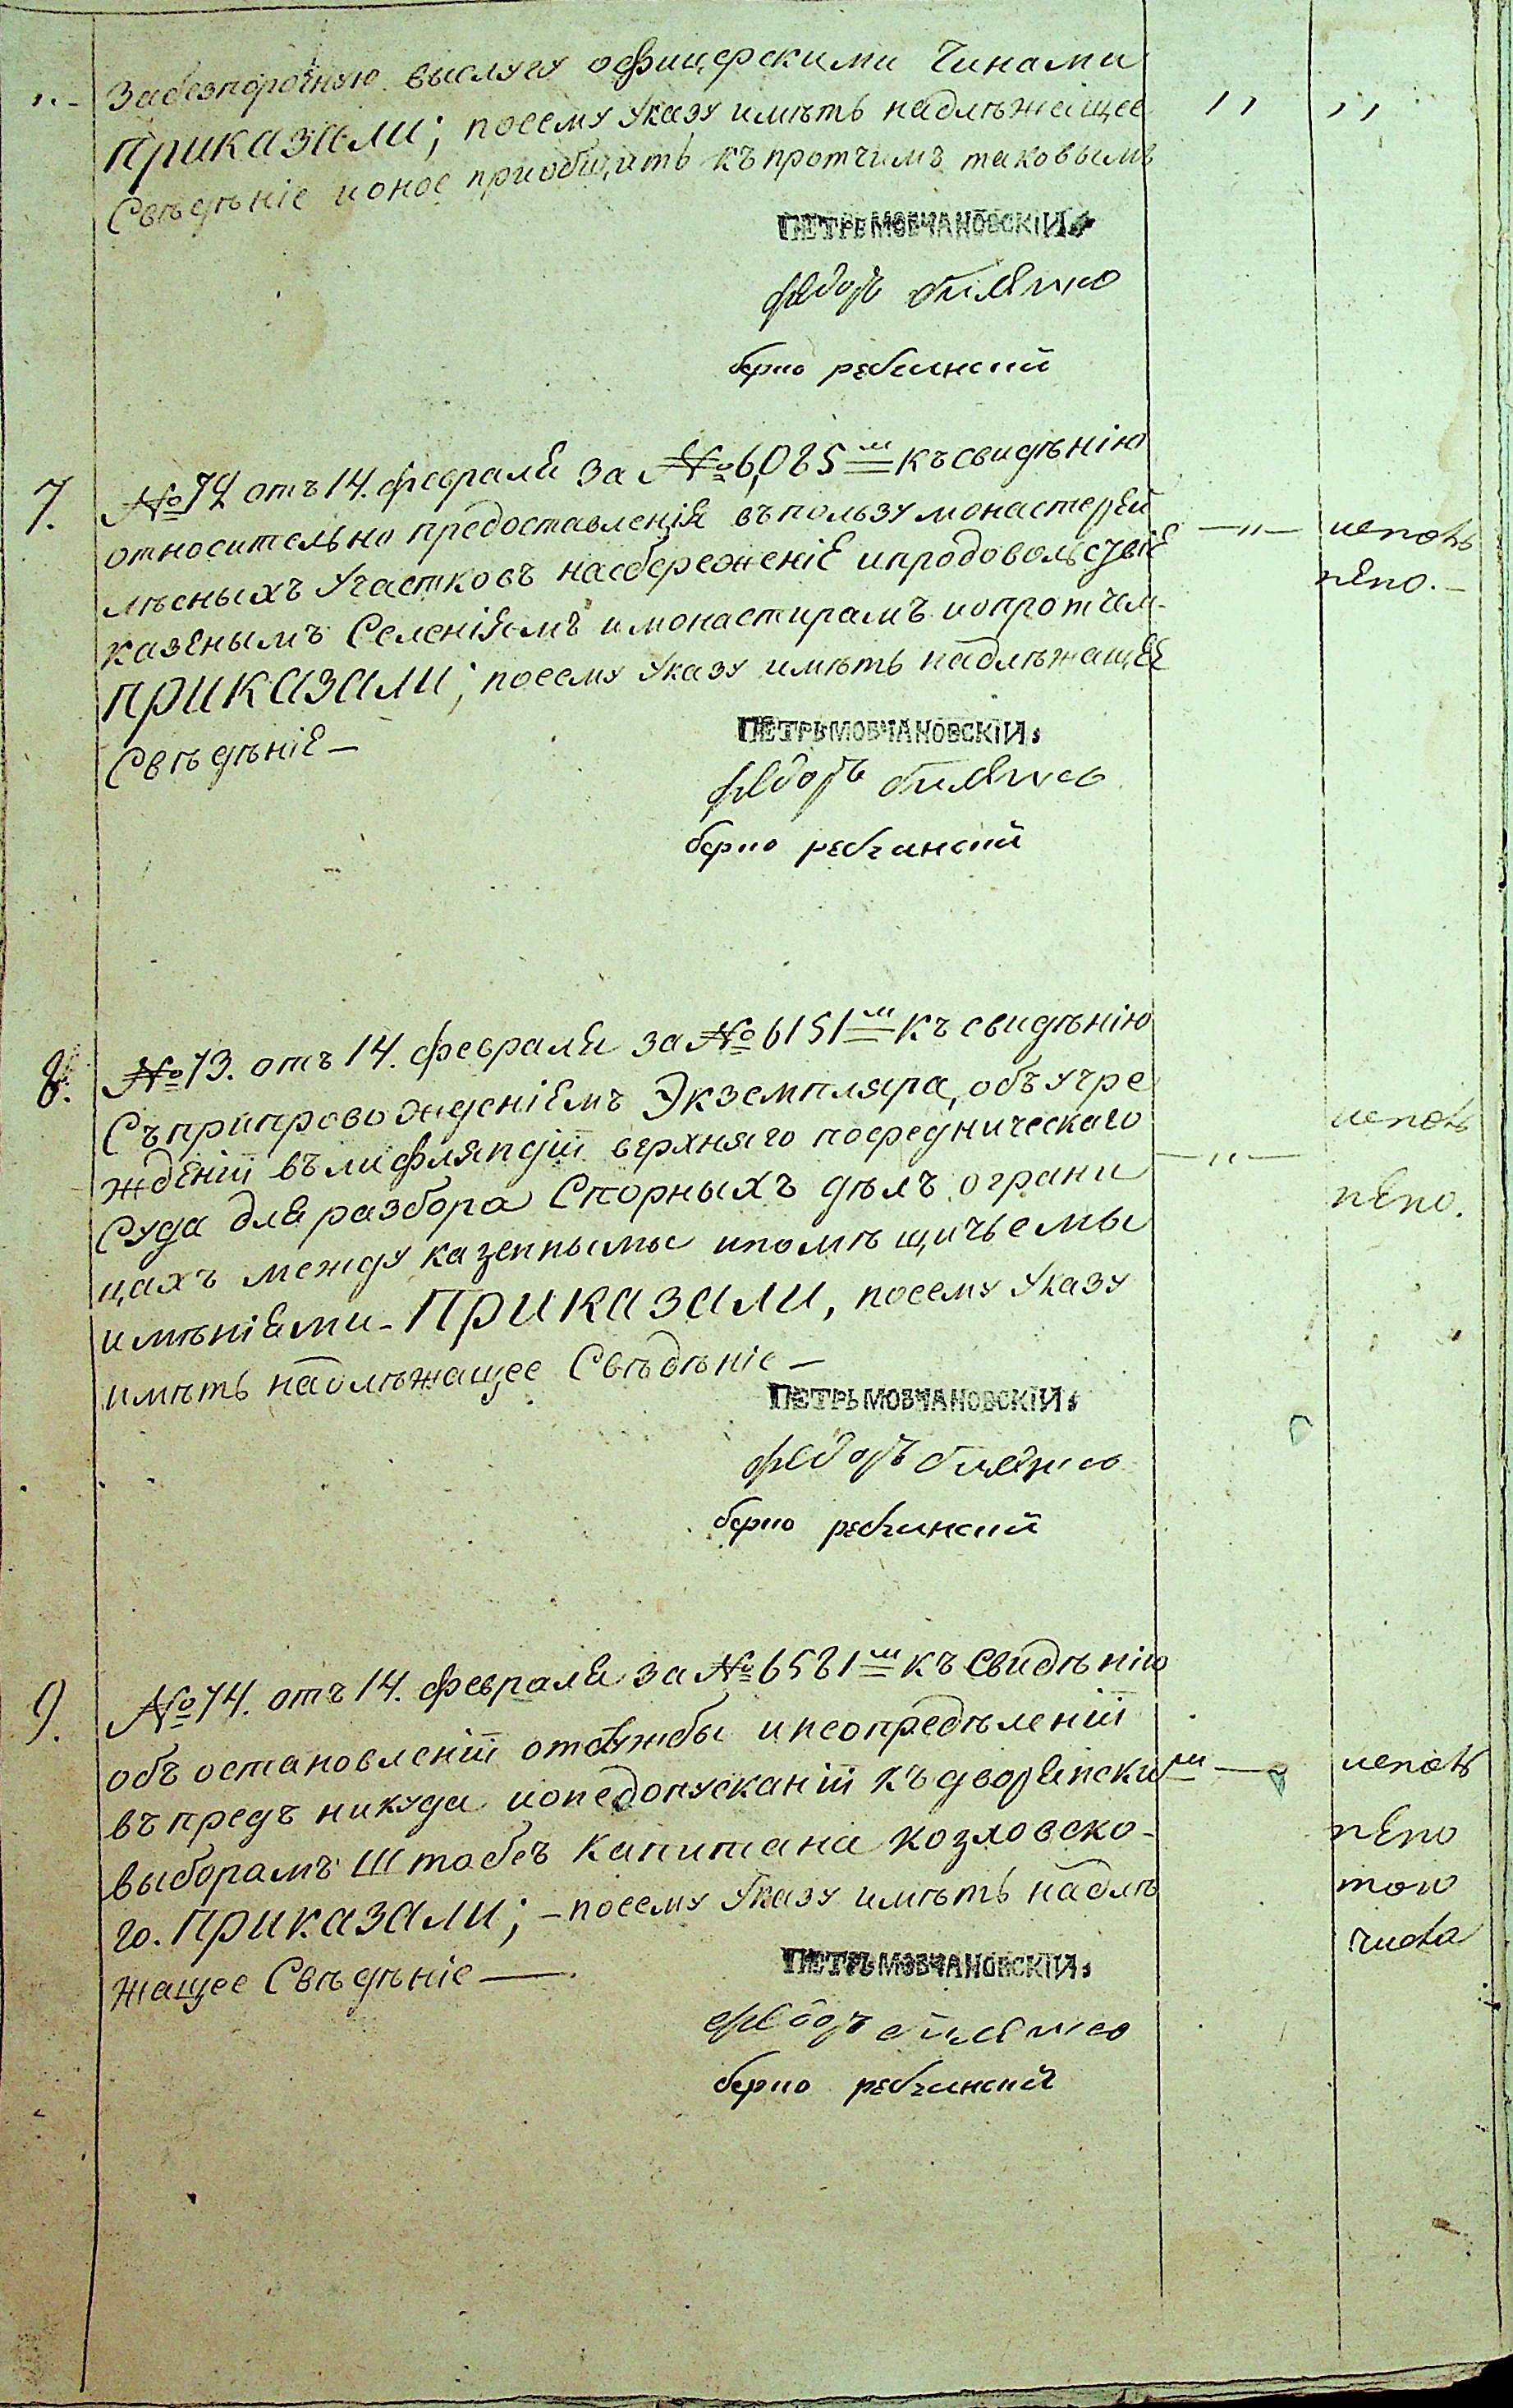 забезпорочную выслугу офицерскими Чинами
приказали; посему Указу имѣть надлѣжещее
Свѣдѣніе ионое приобщить къпротчимъ таковымъ
ПЕТРЬ МОВЧАНОВСКІЙ
федоръ
7. №72 отъ 14. февраля за №6,085м къ свидѣнію
относительно предоставленія въпользу монастерей
лѣсныхъ Участковъ насбереженіе ипродовольствіе
казенымъ Селеніямъ имонастирамъ иопротчем.
приказали; посему Указу имѣть надлѣжащее
Свѣдѣніе —
исполь
нено. —
ПЕТРЬ МОВЧАНОВСКІЙ
федоръ
8. №73. отъ 14. февраля за №6151м къ свидѣнію
Съприпровожденіемъ Экземпляра, объ учре
жденій въ лифляндій верхняго посредническаго
Суда для разбора Спорныхъ дѣлъ ограни
цахъ между казенными ипомѣщичьемы
имѣніями — Приказали, посему Указу
имѣть надлѣжащее Свѣдѣніе —
исполь
нено.
ПЕТРЬ МОВЧАНОВСКІЙ
федоръ
9. №74. отъ 14. февраля за №6581м къ Свидѣнію
объ остановленій отслужбы инеопредѣленій
въпредъ никуда ионедопусканій къдворянским
выборамъ Штабсъ Капитана Козловско-
го. приказали; — посему Указу имѣть надлѣ
жащее Свѣдѣніе —
исполь
нено
того
числа
ПЕТРЬ МОВЧАНОВСКІЙ
федоръ